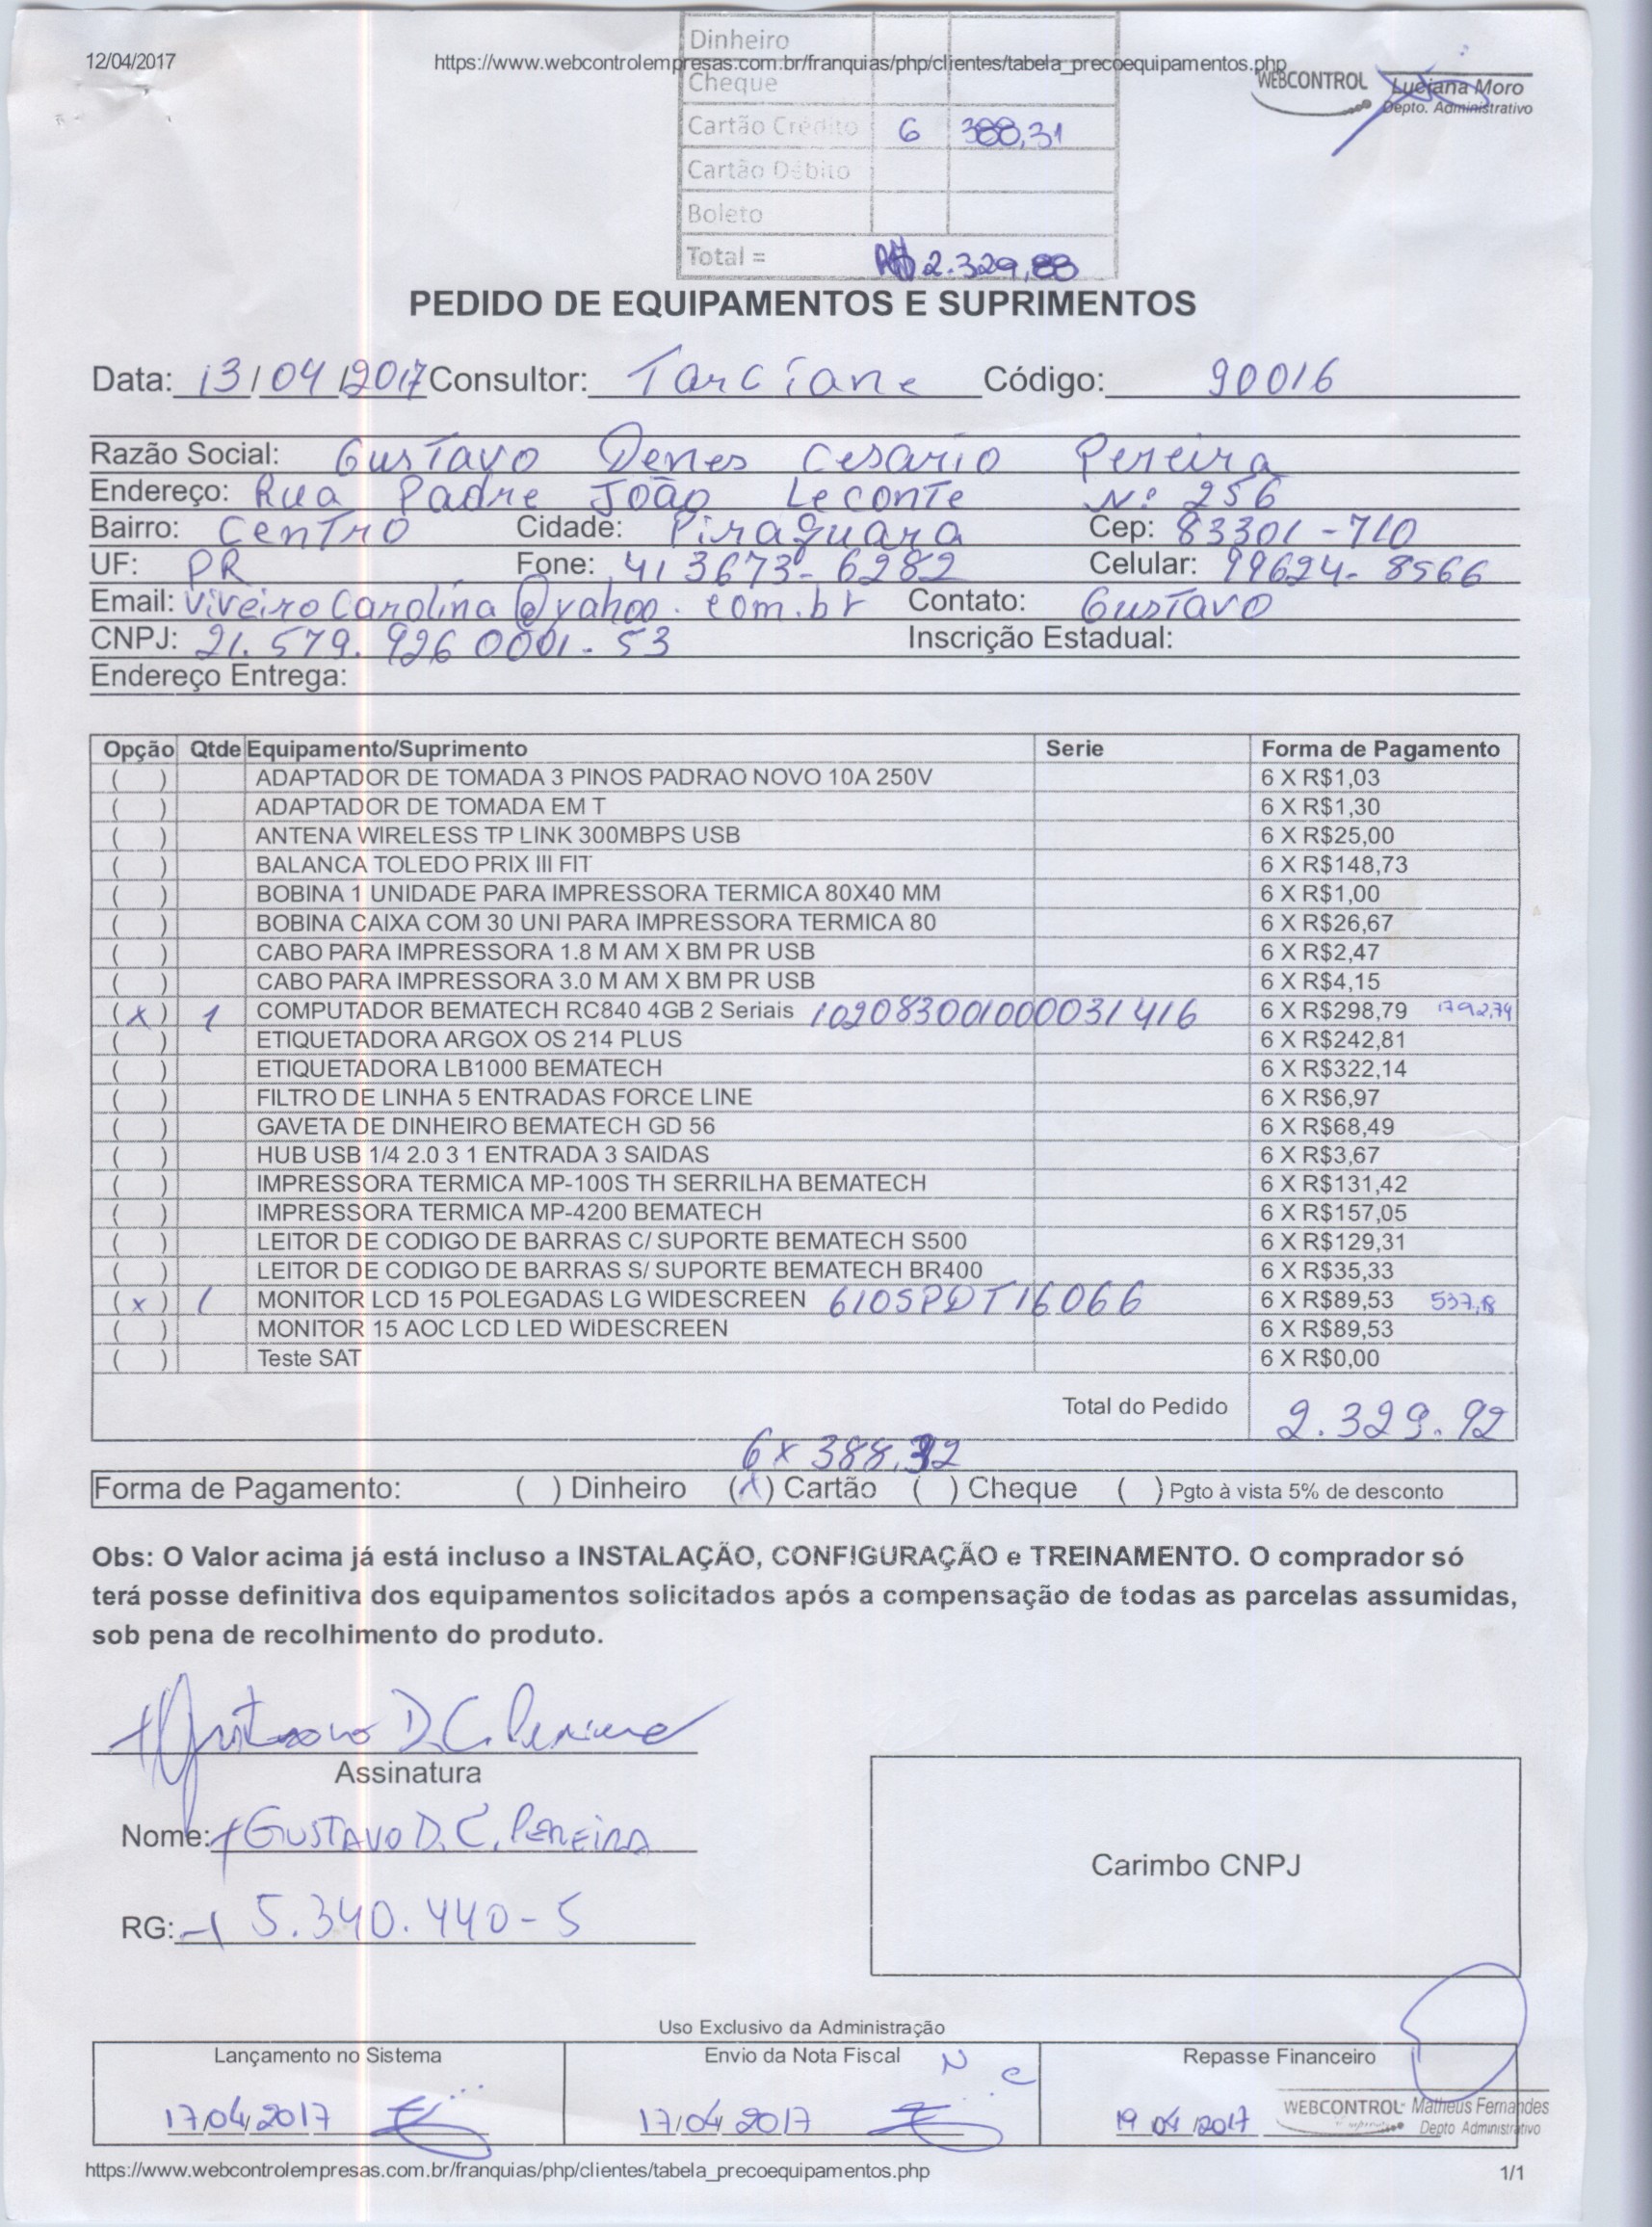 12/04/2017 https://www.webcontrolempresas.com.br/franquias/php/clientes/tabela_precoequipamentos.php
Dinheiro
Cheque
WEBCONTROL Luciana Moro
Depto. Administrativo
Cartão Crédito 6 388,31
Cartão Débito
Boleto
Total = R$ 2.329,88
PEDIDO DE EQUIPAMENTOS E SUPRIMENTOS
Data: 13/04/2017 Consultor: Tarciane Código: 90016
Razão Social: Gustavo Denes Cesario Pereira
Endereço: Rua Padre João Leconte Nº 256
Bairro: Centro Cidade: Piraquara Cep: 83301-710
UF: PR Fone: 41 3673-6282 Celular: 99624-8566
Email: viveirocarolina@yahoo.com.br Contato: Gustavo
CNPJ: 21.579.926 0001-53 Inscrição Estadual:
Endereço Entrega:
Opção Qtde Equipamento/Suprimento Serie Forma de Pagamento
( ) ADAPTADOR DE TOMADA 3 PINOS PADRAO NOVO 10A 250V 6 X R$1,03
( ) ADAPTADOR DE TOMADA EM T 6 X R$1,30
( ) ANTENA WIRELESS TP LINK 300MBPS USB 6 X R$25,00
( ) BALANCA TOLEDO PRIX III FIT 6 X R$148,73
( ) BOBINA 1 UNIDADE PARA IMPRESSORA TERMICA 80X40 MM 6 X R$1,00
( ) BOBINA CAIXA COM 30 UNI PARA IMPRESSORA TERMICA 80 6 X R$26,67
( ) CABO PARA IMPRESSORA 1.8 M AM X BM PR USB 6 X R$2,47
( ) CABO PARA IMPRESSORA 3.0 M AM X BM PR USB 6 X R$4,15
(x) 1 COMPUTADOR BEMATECH RC840 4GB 2 Seriais 102083001000031416 6 X R$298,79 1792,74
( ) ETIQUETADORA ARGOX OS 214 PLUS 6 X R$242,81
( ) ETIQUETADORA LB1000 BEMATECH 6 X R$322,14
( ) FILTRO DE LINHA 5 ENTRADAS FORCE LINE 6 X R$6,97
( ) GAVETA DE DINHEIRO BEMATECH GD 56 6 X R$68,49
( ) HUB USB 1/4 2.0 3 1 ENTRADA 3 SAIDAS 6 X R$3,67
( ) IMPRESSORA TERMICA MP-100S TH SERRILHA BEMATECH 6 X R$131,42
( ) IMPRESSORA TERMICA MP-4200 BEMATECH 6 X R$157,05
( ) LEITOR DE CODIGO DE BARRAS C/ SUPORTE BEMATECH S500 6 X R$129,31
( ) LEITOR DE CODIGO DE BARRAS S/ SUPORTE BEMATECH BR400 6 X R$35,33
(x) 1 MONITOR LCD 15 POLEGADAS LG WIDESCREEN 610SPDT16066 6 X R$89,53
( ) MONITOR 15 AOC LCD LED WIDESCREEN 6 X R$89,53
( ) Teste SAT 6 X R$0,00
Total do Pedido 2.329.92
6x 388.32
Forma de Pagamento: ( ) Dinheiro (x) Cartão ( ) Cheque ( ) Pgto à vista 5% de desconto
Obs: O Valor acima já está incluso a INSTALAÇÃO, CONFIGURAÇÃO e TREINAMENTO. O comprador só
terá posse definitiva dos equipamentos solicitados após a compensação de todas as parcelas assumidas,
sob pena de recolhimento do produto.
Gustavo D.C. Pereira
Assinatura
Nome: GUSTAVO D. C. PEREIRA
RG: 5.340.440-5
Carimbo CNPJ
Uso Exclusivo da Administração
Lançamento no Sistema Envio da Nota Fiscal Repasse Financeiro
17/04/2017 17/04/2017 19/04/2017
WEBCONTROL Matheus Fernandes
Depto Administrativo
https://www.webcontrolempresas.com.br/franquias/php/clientes/tabela_precoequipamentos.php 1/1